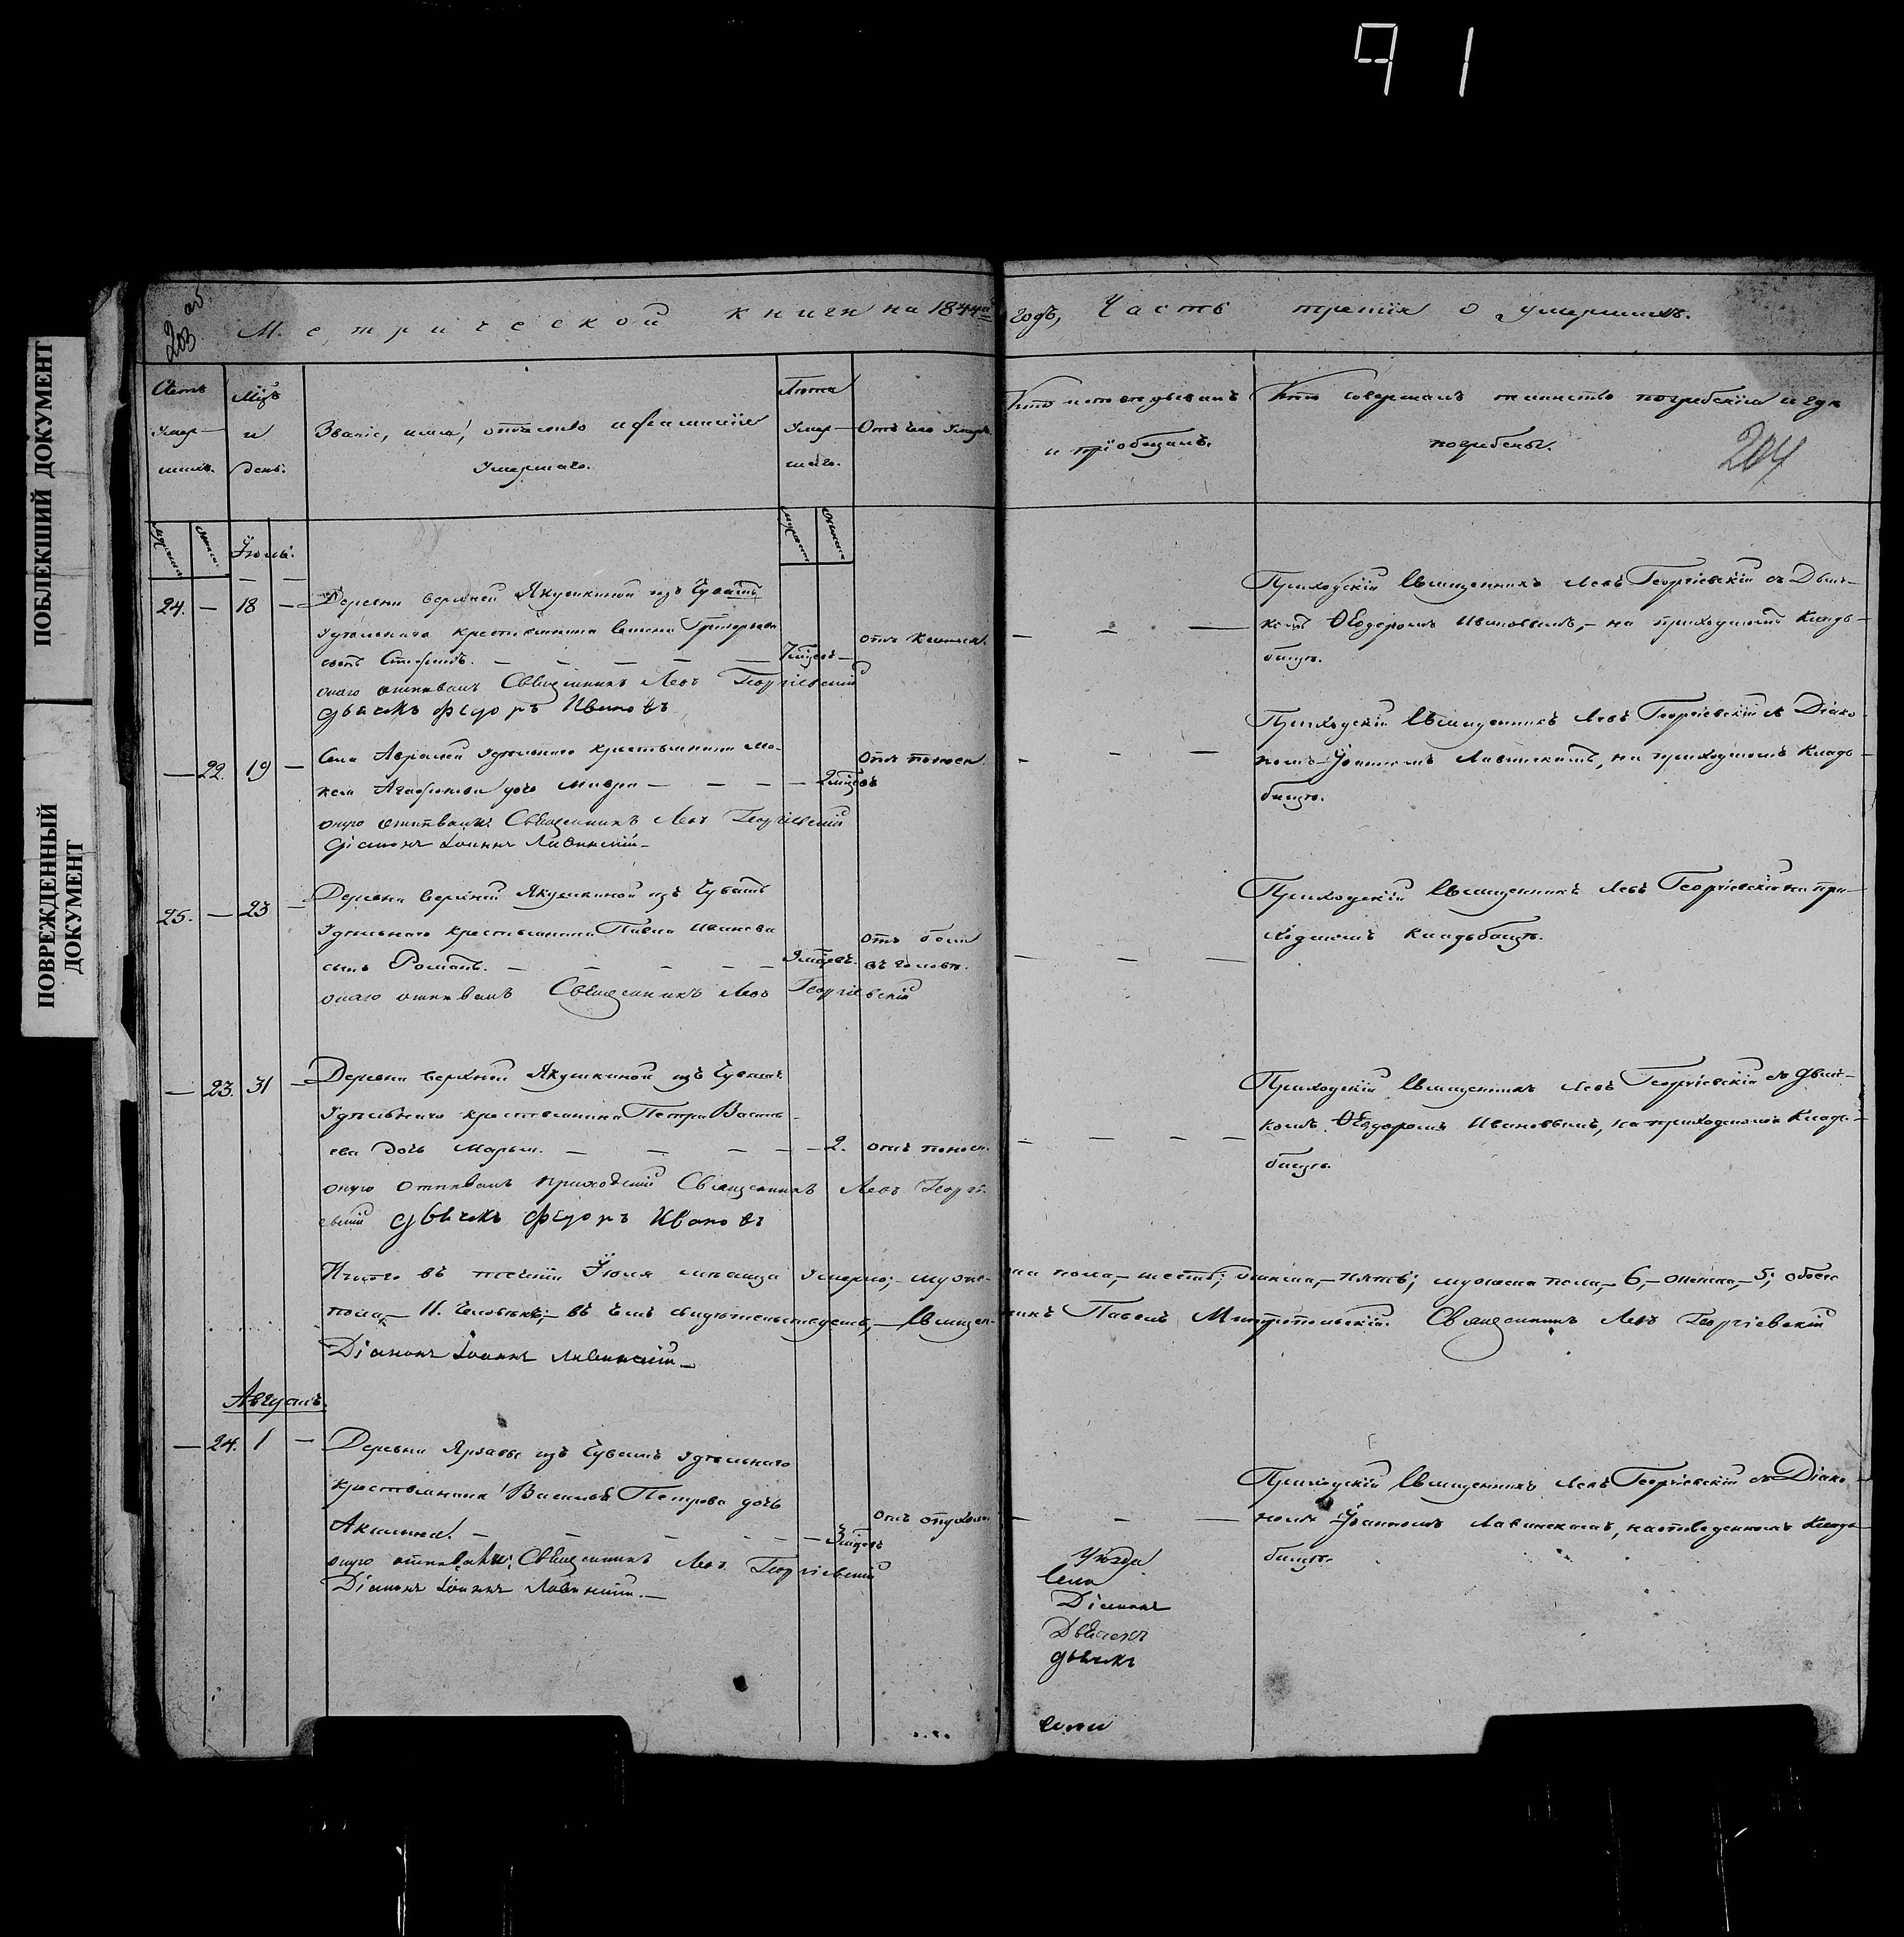 91
ПОБЛЕКШИЙ ДОКУМЕНТ
ПОВРЕЖДЕННЫЙ
ДОКУМЕНТ
203 об
Метрической книги на 1844й годъ, Часть третія о умершихъ.
204
Счетъ умер-шихъ.
Мцъ и день.
Званіе, имя, отчество и фамилія
умершаго.
Лѣта умер-шаго.
Отъ чего умеръ.
Кто исповѣдывалъ
и пріобщалъ.
Кто совершалъ таинство погребенія и гдѣ
погребены.
Мужеска
Женска
Іюль.
Мужеска
Женска
24. — 18 — Деревни верхней Якушкиной изъ Чувашъ
удѣльнаго крестьянина Григорьева
сынъ — — — — —
онаго отпѣвалъ Священникъ Левъ Георгіевскій
дьячекъ Федоръ Ивановъ
Приходскій Священникъ Левъ Георгіевскій съ Дьяч-
комъ Ѳеодоромъ Ивановымъ, — на приходскомъ Кладь-
бищѣ.
— 22. 19 — Села удѣльнаго крестьянина
дочь Мавра — — — — 2 мцевъ
Отъ поноса.
оную отпѣвали: Священникъ Левъ Георгіевскій
Діаконъ Іоаннъ Лавинскій —
Приходскій Священникъ Левъ Георгіевскій съ Діако-
номъ Іоанномъ Лавинскимъ, на приходскомъ Кладь-
бищѣ.
25. — 23 — Деревни верхней Якушкиной изъ Чувашъ
удѣльнаго крестьянина Павла Иванова
сынъ Романъ. — — — — —
отъ боли
въ головѣ.
онаго отпѣвалъ Священникъ Левъ Георгіевскій
Приходскій Священникъ Левъ Георгіевскій на при-
ходскомъ Кладьбищѣ.
— 23. 31 — Деревни верхней Якушкиной изъ Чувашъ
удѣльнаго крестьянина Петра Василь-
ева дочь Марья. — — — — — 2. отъ поноса.
оную отпѣвалъ приходскій Священникъ Левъ Георгі-
евскій дьячекъ Федоръ Ивановъ
Приходскій Священникъ Левъ Георгіевскій съ Дьяч-
комъ Ѳеодоромъ Ивановымъ, на приходскомъ Кладь-
бищѣ.
Итого въ теченіи Іюля мѣсяца умерло; мужеска пола, — шесть; женска, — пять; мужеска пола, — 6, — женска, — 5; обоего
пола, — 11. Человѣкъ; — въ чемъ свидѣтельствуемъ, — Священникъ Павелъ Митропольскій. Священникъ Левъ Георгіевскій
Діаконъ Іоаннъ Лавинскій —
Августъ.
— 24. 1 — Деревни изъ Чувашъ удѣльнаго
крестьянина Василья Петрова дочь
Акилина. — — — — — —
отъ опухоли.
оную отпѣвали: Священникъ Левъ Георгіевскій
Діаконъ Іоаннъ Лавинскій. —
Приходскій Священникъ Левъ Георгіевскій съ Діако-
номъ Іоанномъ Лавинскимъ, на отведенномъ Кладь-
бищѣ.
Уѣзда
Села
Діаконъ
Дьячекъ
дьячекъ